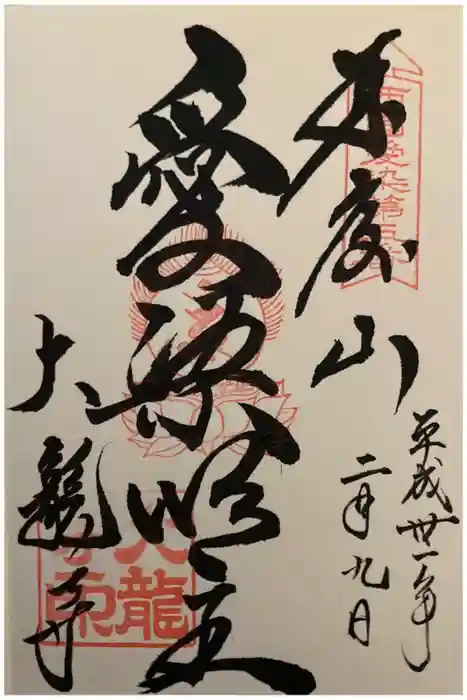 再度山
愛染明王
大龍寺
平成卅一年
二月九日
大龍
寺印